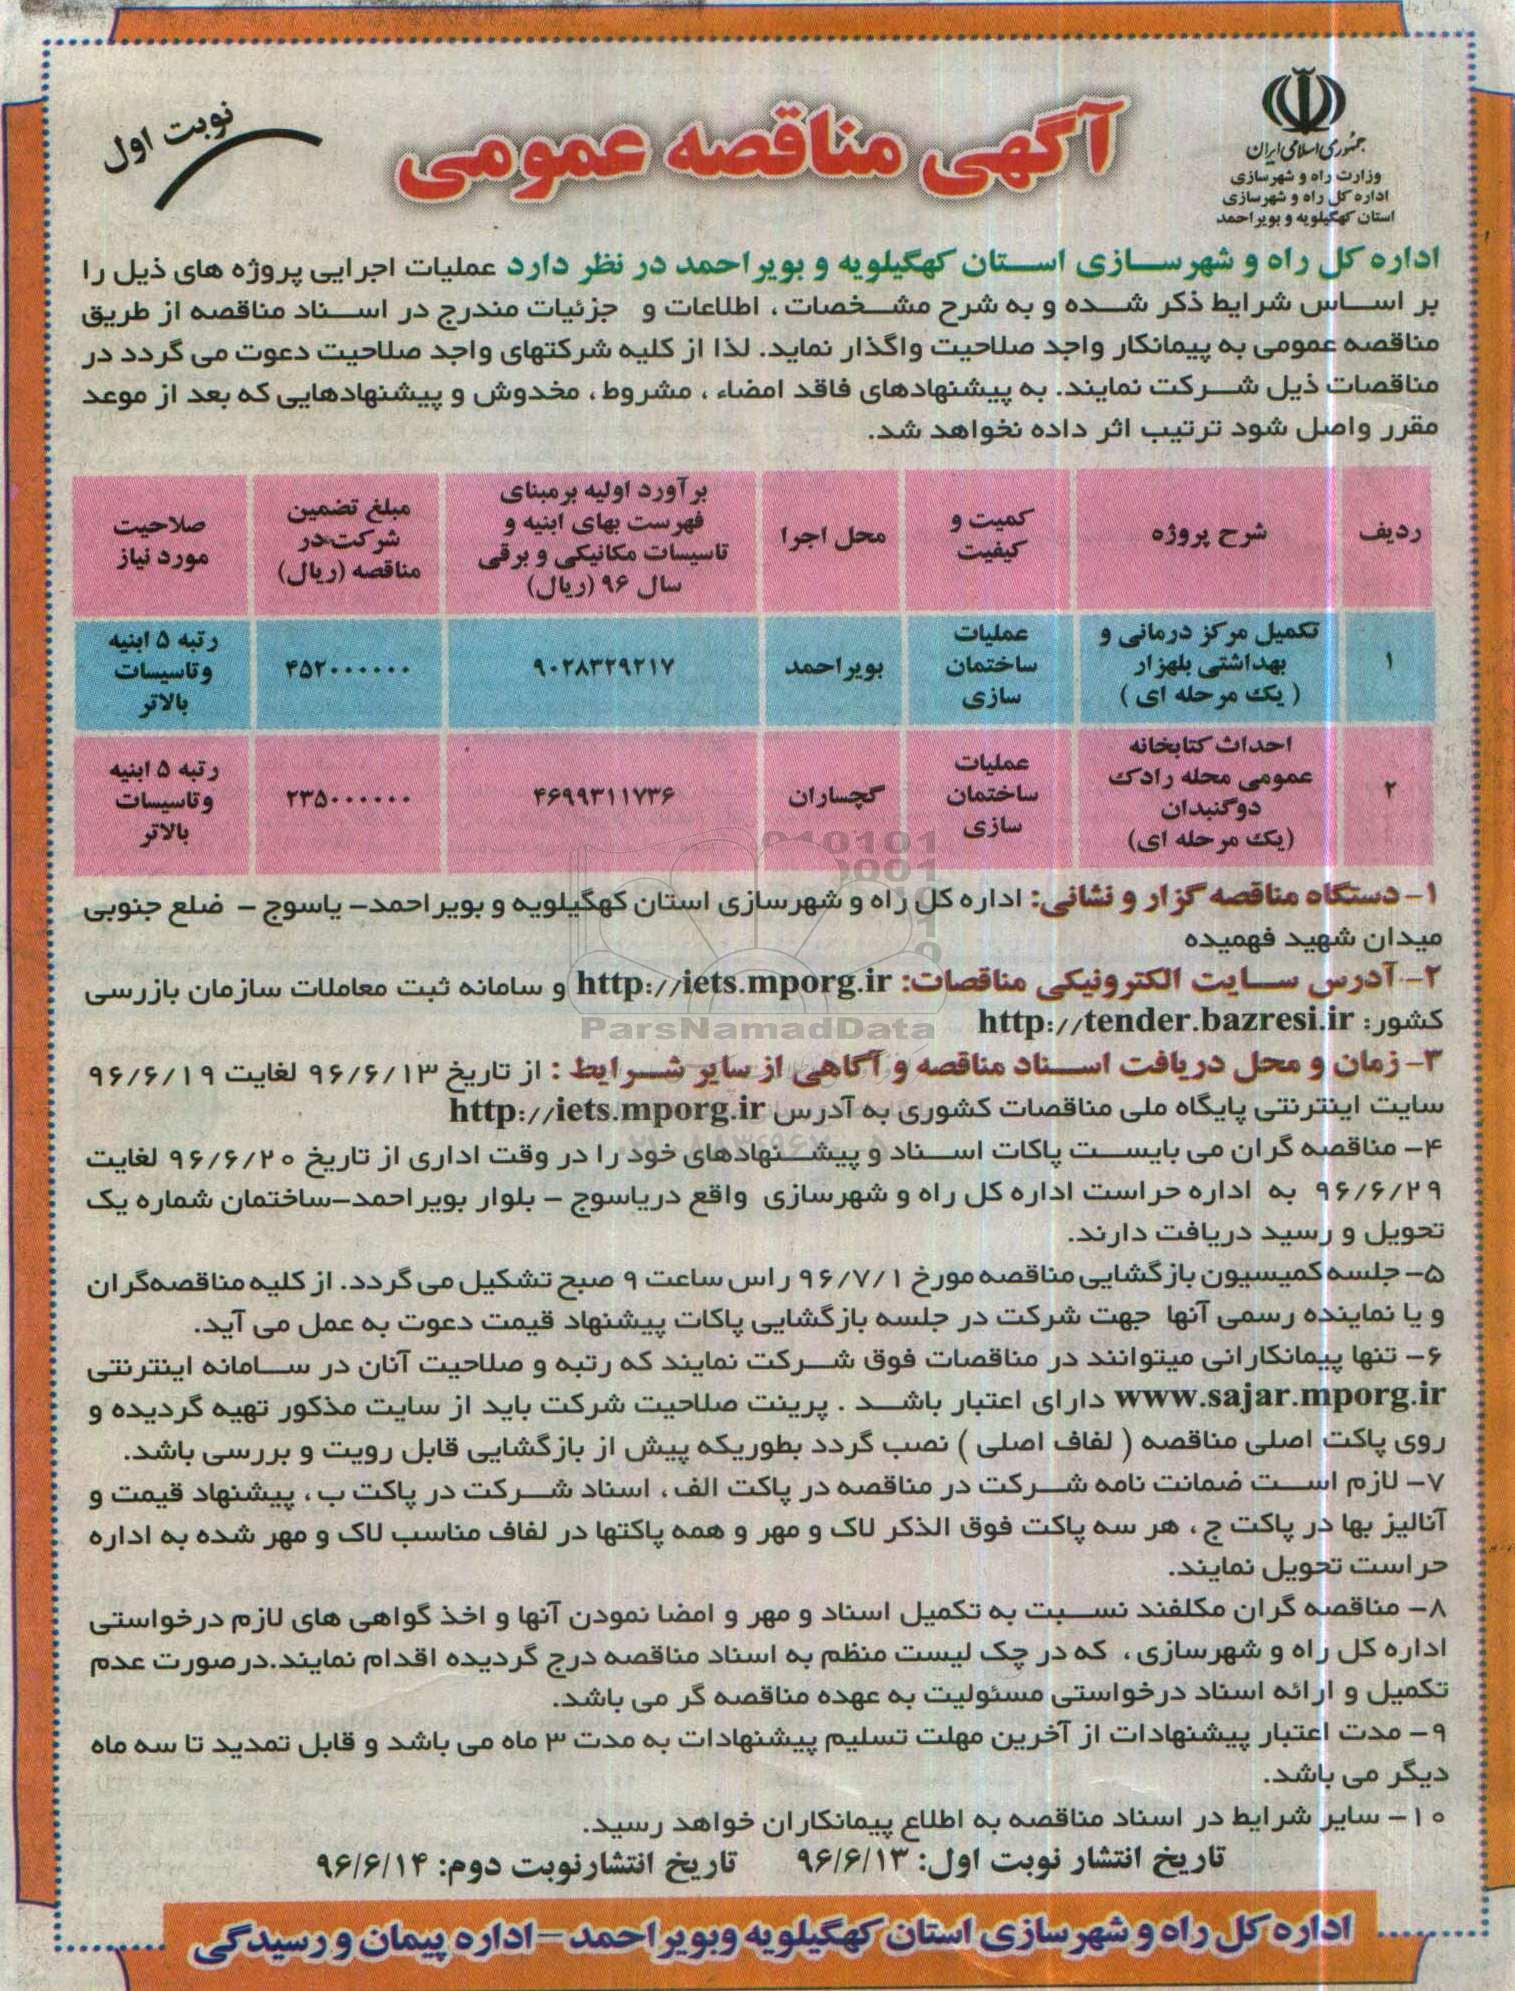 جمهوری اسلامی ایران
وزارت راه و شهرسازی
اداره کل راه و شهرسازی
استان کهگیلویه و بویراحمد
آگهی مناقصه عمومی
نوبت اول
اداره کل راه و شهرسازی استان کهگیلویه و بویراحمد در نظر دارد عملیات اجرایی پروژه های ذیل را
بر اساس شرایط ذکر شده و به شرح مشخصات، اطلاعات و جزئیات مندرج در اسناد مناقصه از طریق
مناقصه عمومی به پیمانکار واجد صلاحیت واگذار نماید. لذا از کلیه شرکتهای واجد صلاحیت دعوت می گردد در
مناقصات ذیل شرکت نمایند. به پیشنهادهای فاقد امضاء، مشروط، مخدوش و پیشنهادهایی که بعد از موعد
مقرر واصل شود ترتیب اثر داده نخواهد شد.
ردیف
شرح پروژه
کمیت و
کیفیت
محل اجرا
برآورد اولیه برمبنای
فهرست بهای ابنیه و
تاسیسات مکانیکی و برقی
سال ۹۶ (ریال)
مبلغ تضمین
شرکت در
مناقصه (ریال)
صلاحیت
مورد نیاز
۱
تکمیل مرکز درمانی و
بهداشتی بلهزار
( یک مرحله ای )
عملیات
ساختمان
سازی
بویراحمد
۹۰۲۸۳۲۹۲۱۷
۴۵۲۰۰۰۰۰۰
رتبه ۵ ابنیه
وتاسیسات
بالاتر
۲
احداث کتابخانه
عمومی محله رادک
دوگنبدان
(یک مرحله ای)
عملیات
ساختمان
سازی
گچساران
۴۶۹۹۳۱۱۷۳۶
۲۳۵۰۰۰۰۰۰
رتبه ۵ ابنیه
وتاسیسات
بالاتر
۱- دستگاه مناقصه گزار و نشانی: اداره کل راه و شهرسازی استان کهگیلویه و بویراحمد- یاسوج - ضلع جنوبی
میدان شهید فهمیده
۲- آدرس سایت الکترونیکی مناقصات: http://iets.mporg.ir و سامانه ثبت معاملات سازمان بازرسی
کشور: http://tender.bazresi.ir
ParsNamadData
۳- زمان و محل دریافت اسناد مناقصه و آگاهی از سایر شرایط : از تاریخ ۹۶/۶/۱۳ لغایت ۹۶/۶/۱۹
سایت اینترنتی پایگاه ملی مناقصات کشوری به آدرس http://iets.mporg.ir
۴- مناقصه گران می بایست پاکات اسناد و پیشنهادهای خود را در وقت اداری از تاریخ ۹۶/۶/۲۰ لغایت
۹۶/۶/۲۹ به اداره حراست اداره کل راه و شهرسازی واقع دریاسوج - بلوار بویراحمد-ساختمان شماره یک
تحویل و رسید دریافت دارند.
۵- جلسه کمیسیون بازگشایی مناقصه مورخ ۹۶/۷/۱ راس ساعت ۹ صبح تشکیل می گردد. از کلیه مناقصه‌گران
و یا نماینده رسمی آنها جهت شرکت در جلسه بازگشایی پاکات پیشنهاد قیمت دعوت به عمل می آید.
۶- تنها پیمانکارانی میتوانند در مناقصات فوق شرکت نمایند که رتبه و صلاحیت آنان در سامانه اینترنتی
www.sajar.mporg.ir دارای اعتبار باشد . پرینت صلاحیت شرکت باید از سایت مذکور تهیه گردیده و
روی پاکت اصلی مناقصه ( لفاف اصلی ) نصب گردد بطوریکه پیش از بازگشایی قابل رویت و بررسی باشد.
۷- لازم است ضمانت نامه شرکت در مناقصه در پاکت الف، اسناد شرکت در پاکت ب، پیشنهاد قیمت و
آنالیز بها در پاکت ج، هر سه پاکت فوق الذکر لاک و مهر و همه پاکتها در لفاف مناسب لاک و مهر شده به اداره
حراست تحویل نمایند.
۸- مناقصه گران مکلفند نسبت به تکمیل اسناد و مهر و امضا نمودن آنها و اخذ گواهی های لازم درخواستی
اداره کل راه و شهرسازی، که در چک لیست منظم به اسناد مناقصه درج گردیده اقدام نمایند.درصورت عدم
تکمیل و ارائه اسناد درخواستی مسئولیت به عهده مناقصه گر می باشد.
۹- مدت اعتبار پیشنهادات از آخرین مهلت تسلیم پیشنهادات به مدت ۳ ماه می باشد و قابل تمدید تا سه ماه
دیگر می باشد.
۱۰- سایر شرایط در اسناد مناقصه به اطلاع پیمانکاران خواهد رسید.
تاریخ انتشار نوبت اول: ۹۶/۶/۱۳ تاریخ انتشارنوبت دوم: ۹۶/۶/۱۴
اداره کل راه و شهرسازی استان کهگیلویه وبویراحمد - اداره پیمان و رسیدگی